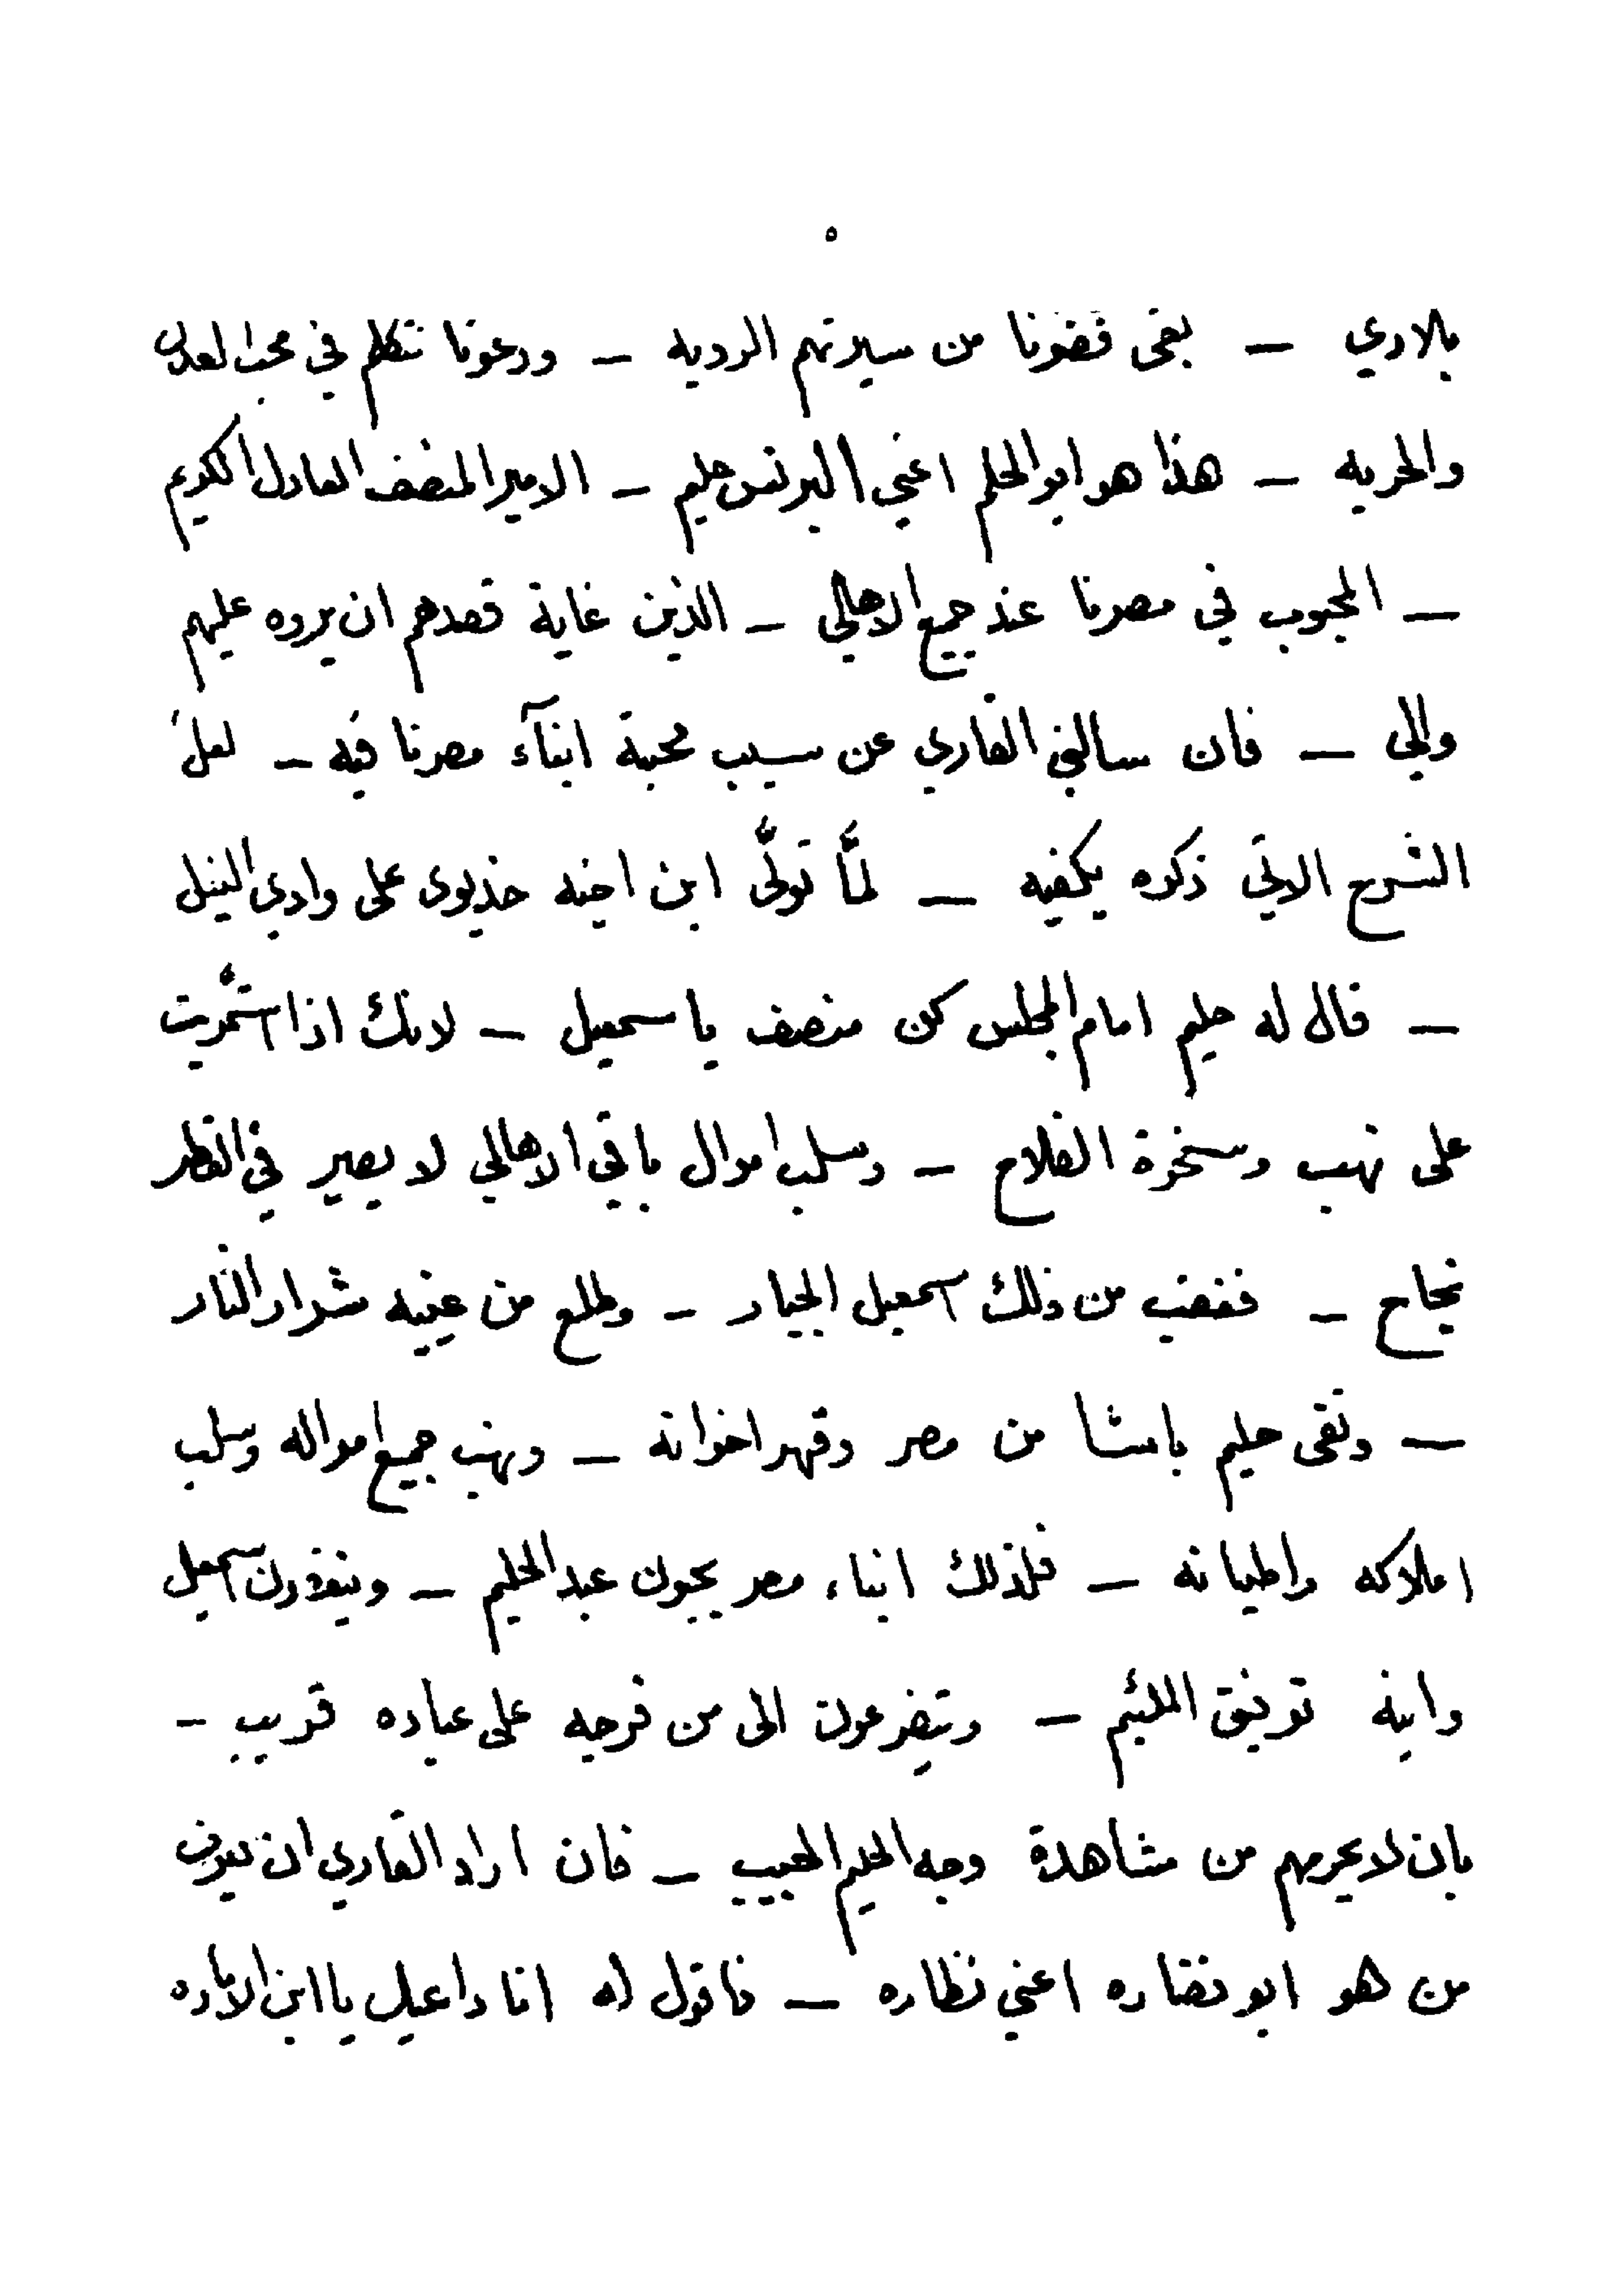 ٥
بلادي — بقى فضونا من سيرتهم الرديه — ودعونا نتكلم في محب العدل
والحريه — هذا هو ابو الحلم اعني البرنس حليم — الامير المنصف العادل الكريم
— المحبوب في مصرنا عند جميع الاهالي — الذين غاية قصدهم ان يروه عليهم
والي — فان سالني القاري عن سبب محبة ابنآء مصرنا فيه — لعلّ
الشرح الاتي ذكره يكفيه — لمَّا تولَّى ابن اخيه خديوى على وادي النيل
— قال له حليم امام المجلس كن منصف يا سمعيل — لانك اذا استمَّريت
على نهب وسخرة الفلاح — وسلب اموال باقي الاهالي لا يصير في القطر
نجاح — فغضب من ذلك اسمعيل الجبار — وطلع من عينيه شرار النار
— ونفى حليم باشا من مصر وقهر اخوانه — ونهب جميع امواله وسلب
املاكه واطيانه — فلذلك ابناء مصر يحبون عبد الحليم — وينفرون اسمعيل
وابنه توفيق اللئيم — ويتضرعون الى من فرجه على عباده قريب —
بان لا يحرمهم من مشاهدة وجه الحليم الحبيب — فان اراد القاري ان يعرف
من هو ابو نضاره اعني نظاره — فاقول له انا داعيك يا ابن الاماره